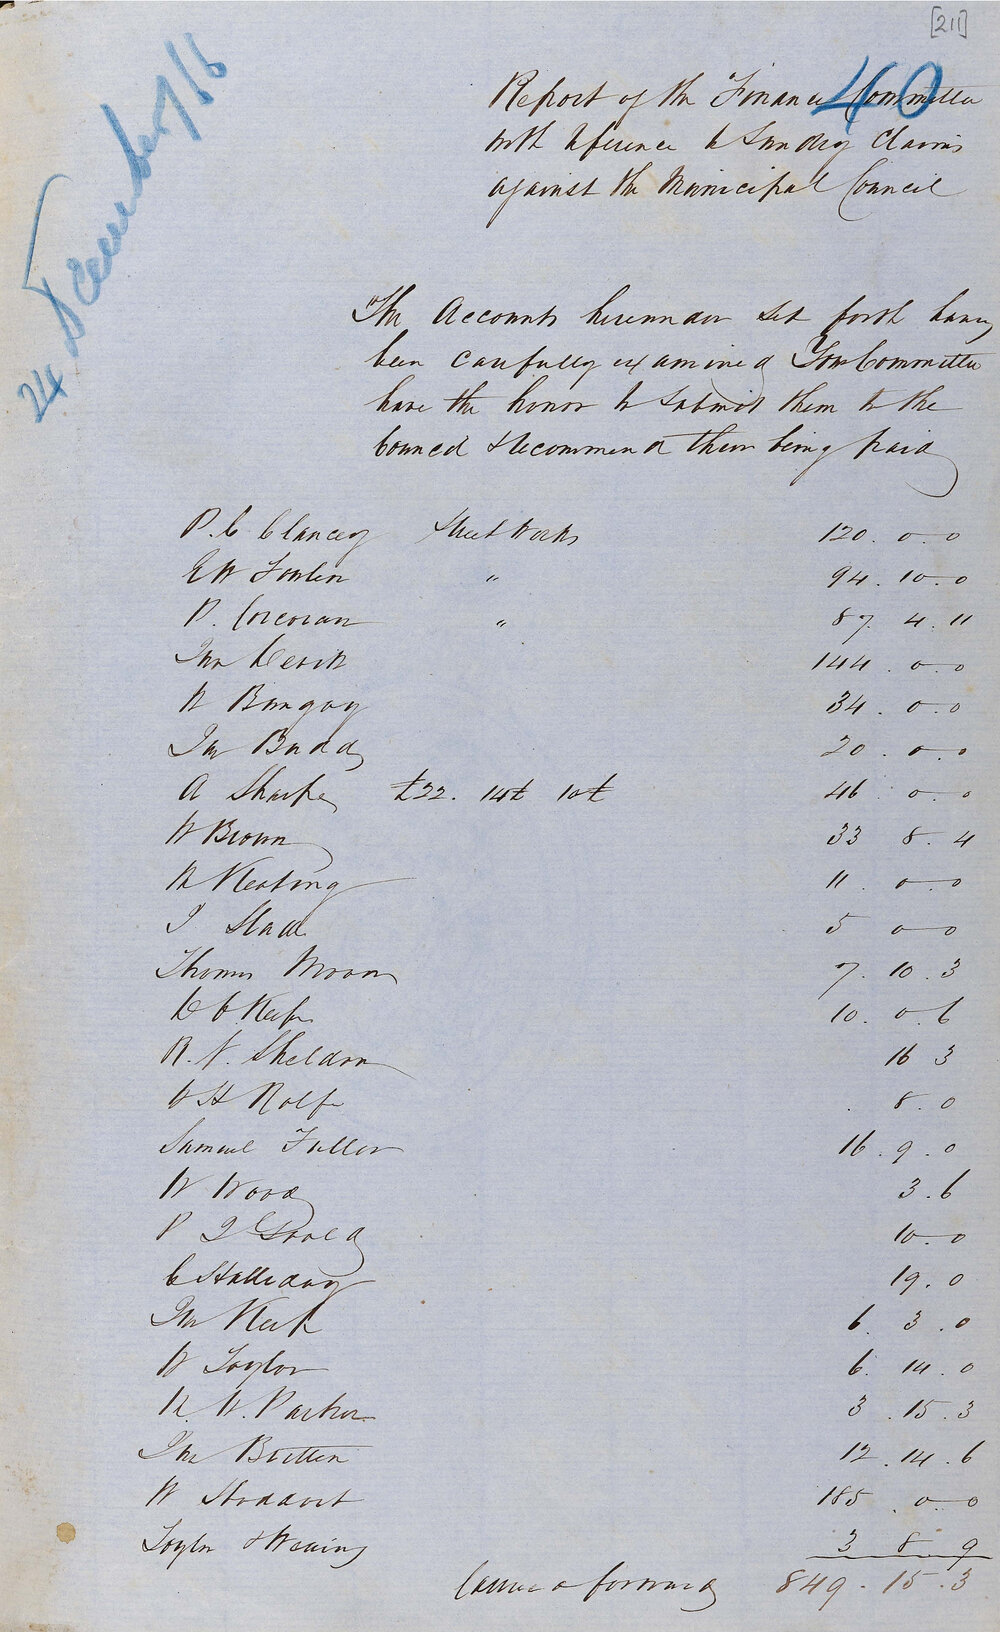 [211]
40
24 December/56
Report of the Finance Committee
with reference to Sundry Claims
against the Municipal Council
The Accounts hereunder set forth having
been carefully examined Your Committee
have the honor to Submit them to the
Council & Recommend their being paid
P. C Clancey Street Works 120. 0. 0
E W " 94. 10. 0
P. Corcoran " 87. 4. 11
144. 0. 0
W Bangay 34. 0. 0
Budd 20. 0. 0
A Sharpe £22. 14£ 10£ 46. 0. 0
W Brown 33 8. 4
R Keating 11. 0. 0
J Slade 5 0. 0
Thomas Moore 7. 10. 3
O'Keefe 10. 0. 6
R. N. Sheldon 16 3
W H Rolfe 8. 0
Samuel Fuller 16. 9. 0
W Wood 3. 6
P Gould 10. 0
C Halliday 19. 0
Keep 6. 3. 0
W Taylor 6. 14. 0
R. W. Parker 3. 15. 3
Jno Britten 12. 14. 6
W Stoddart 185. 0. 0
Taylor & Wearing 3 8 9
Carried forward 849. 15. 3